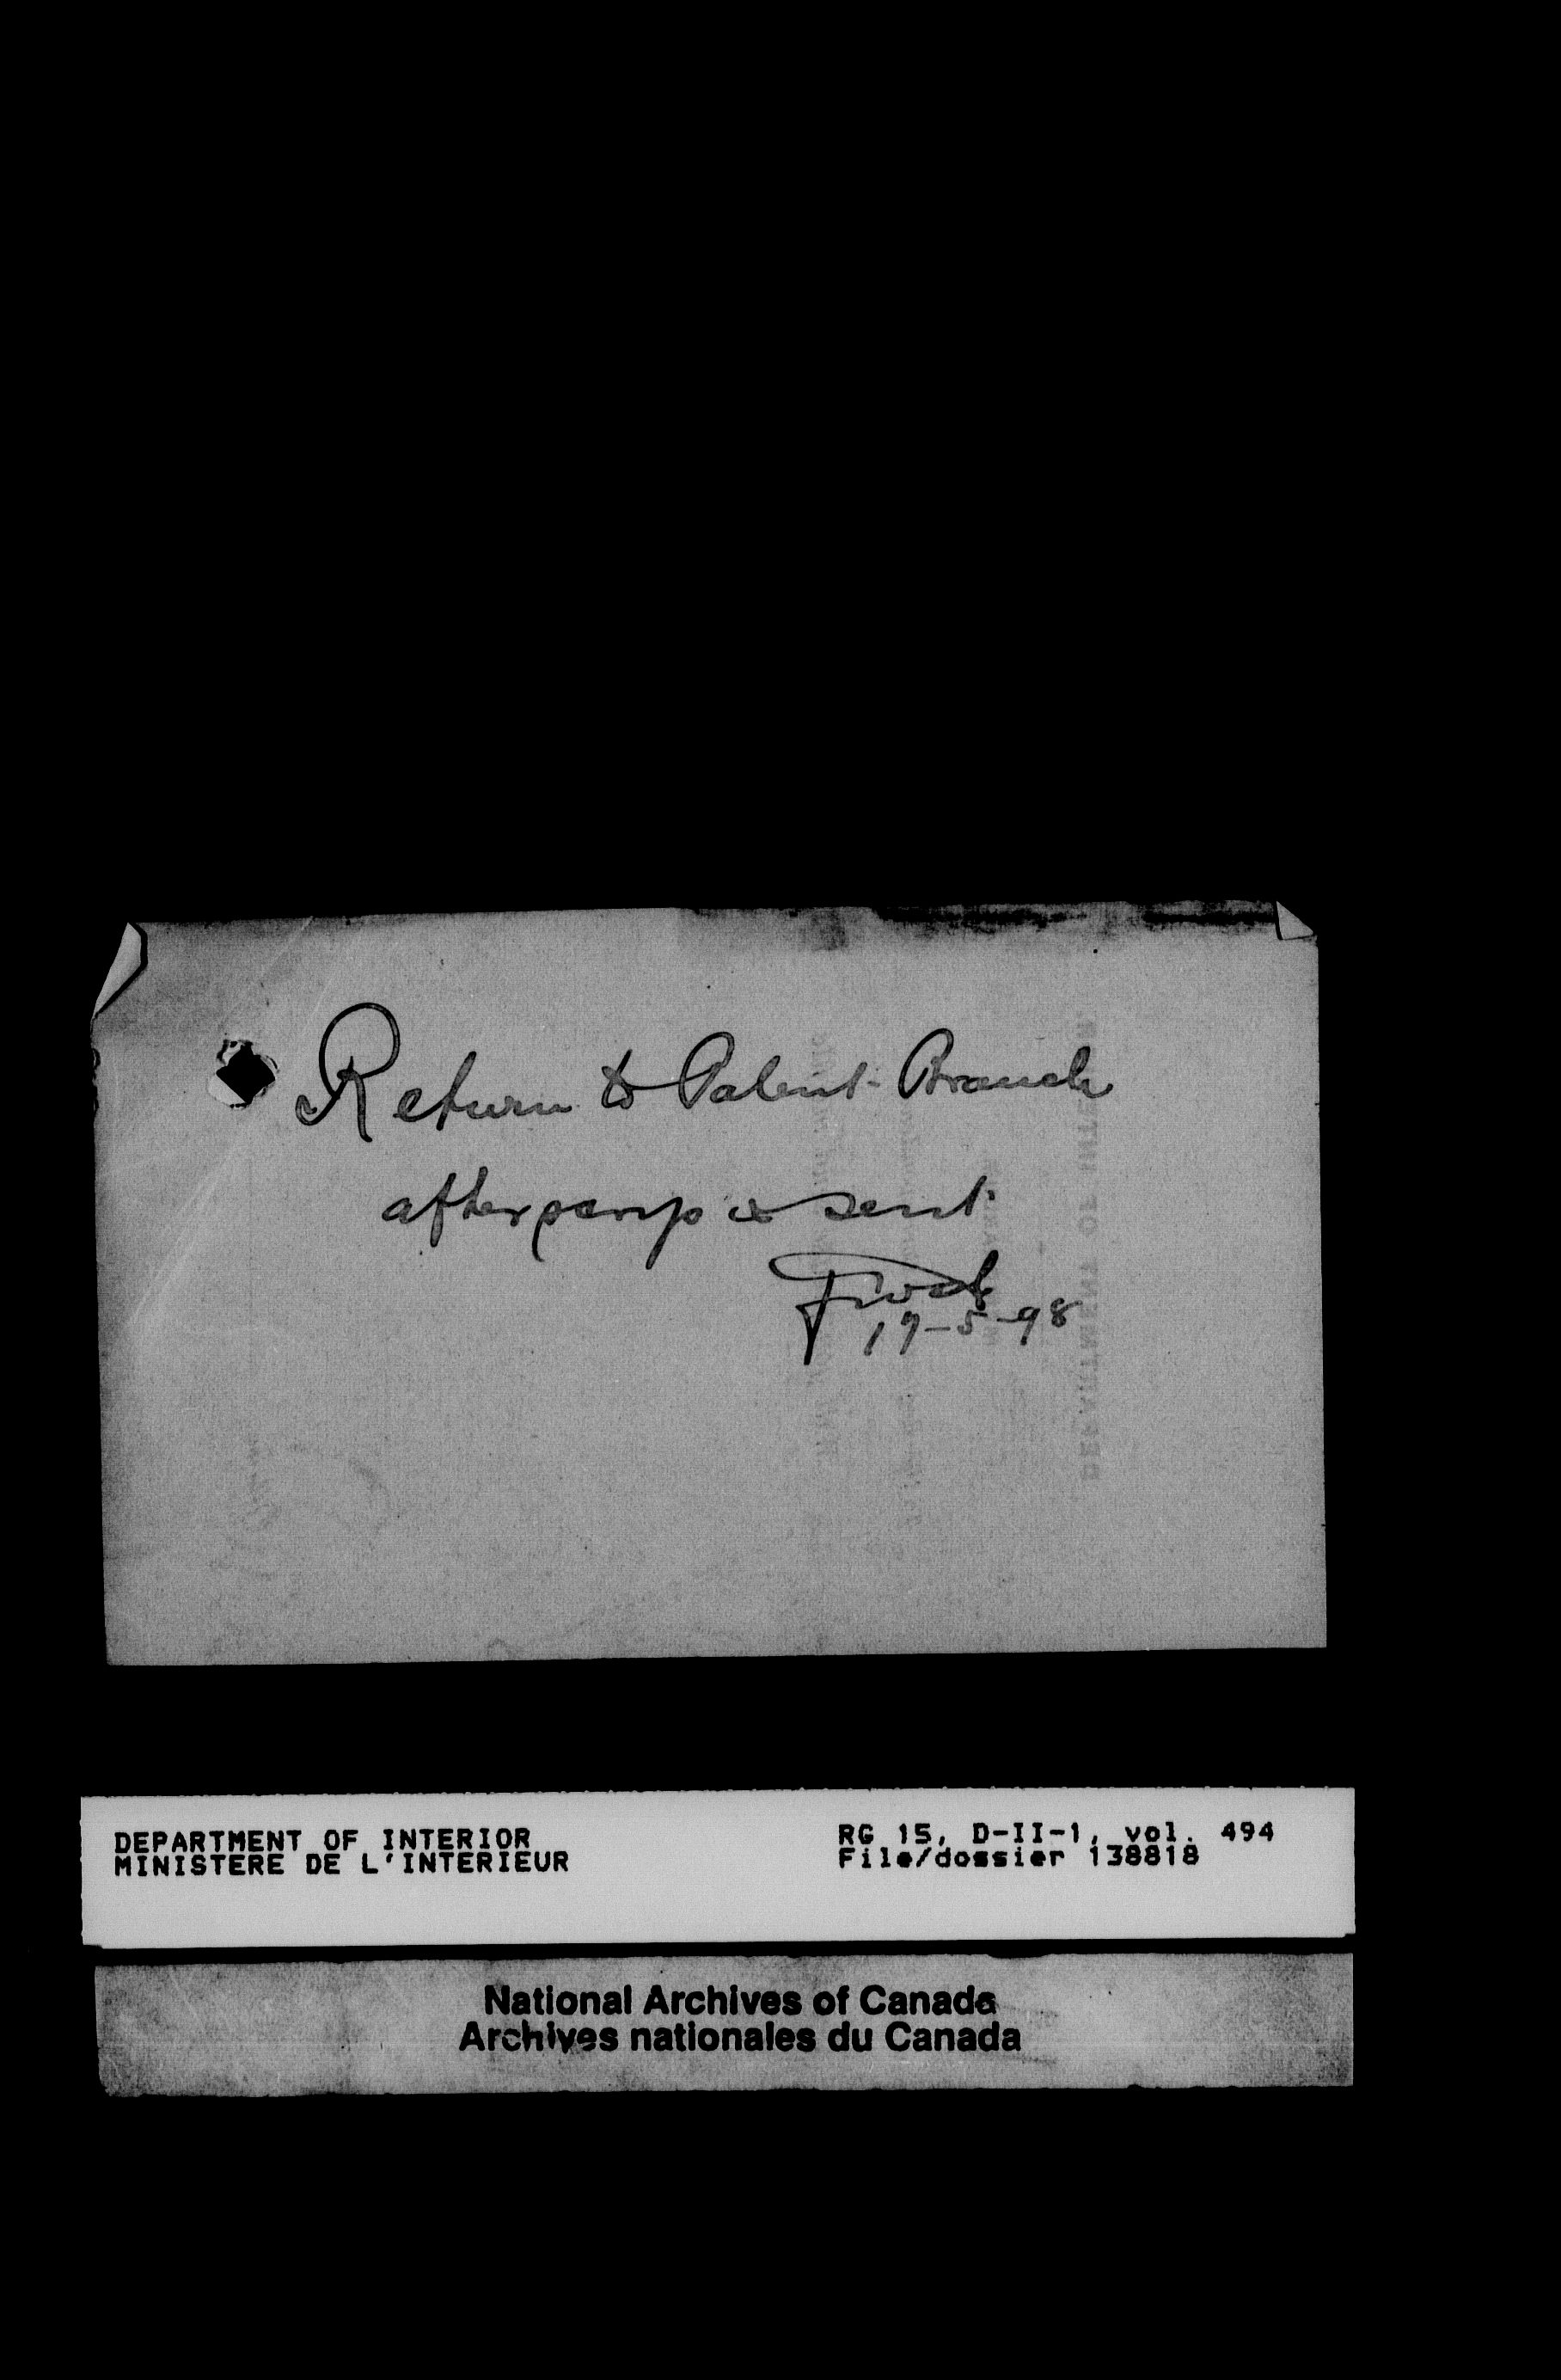 Return to Patent Branch
after scrip is sent
17-5-98
DEPARTMENT OF INTERIOR
MINISTERE DE L'INTERIEUR
RG 15, D-II-1, vol. 494
File/dossier 138818
National Archives of Canada
Archives nationales du Canada